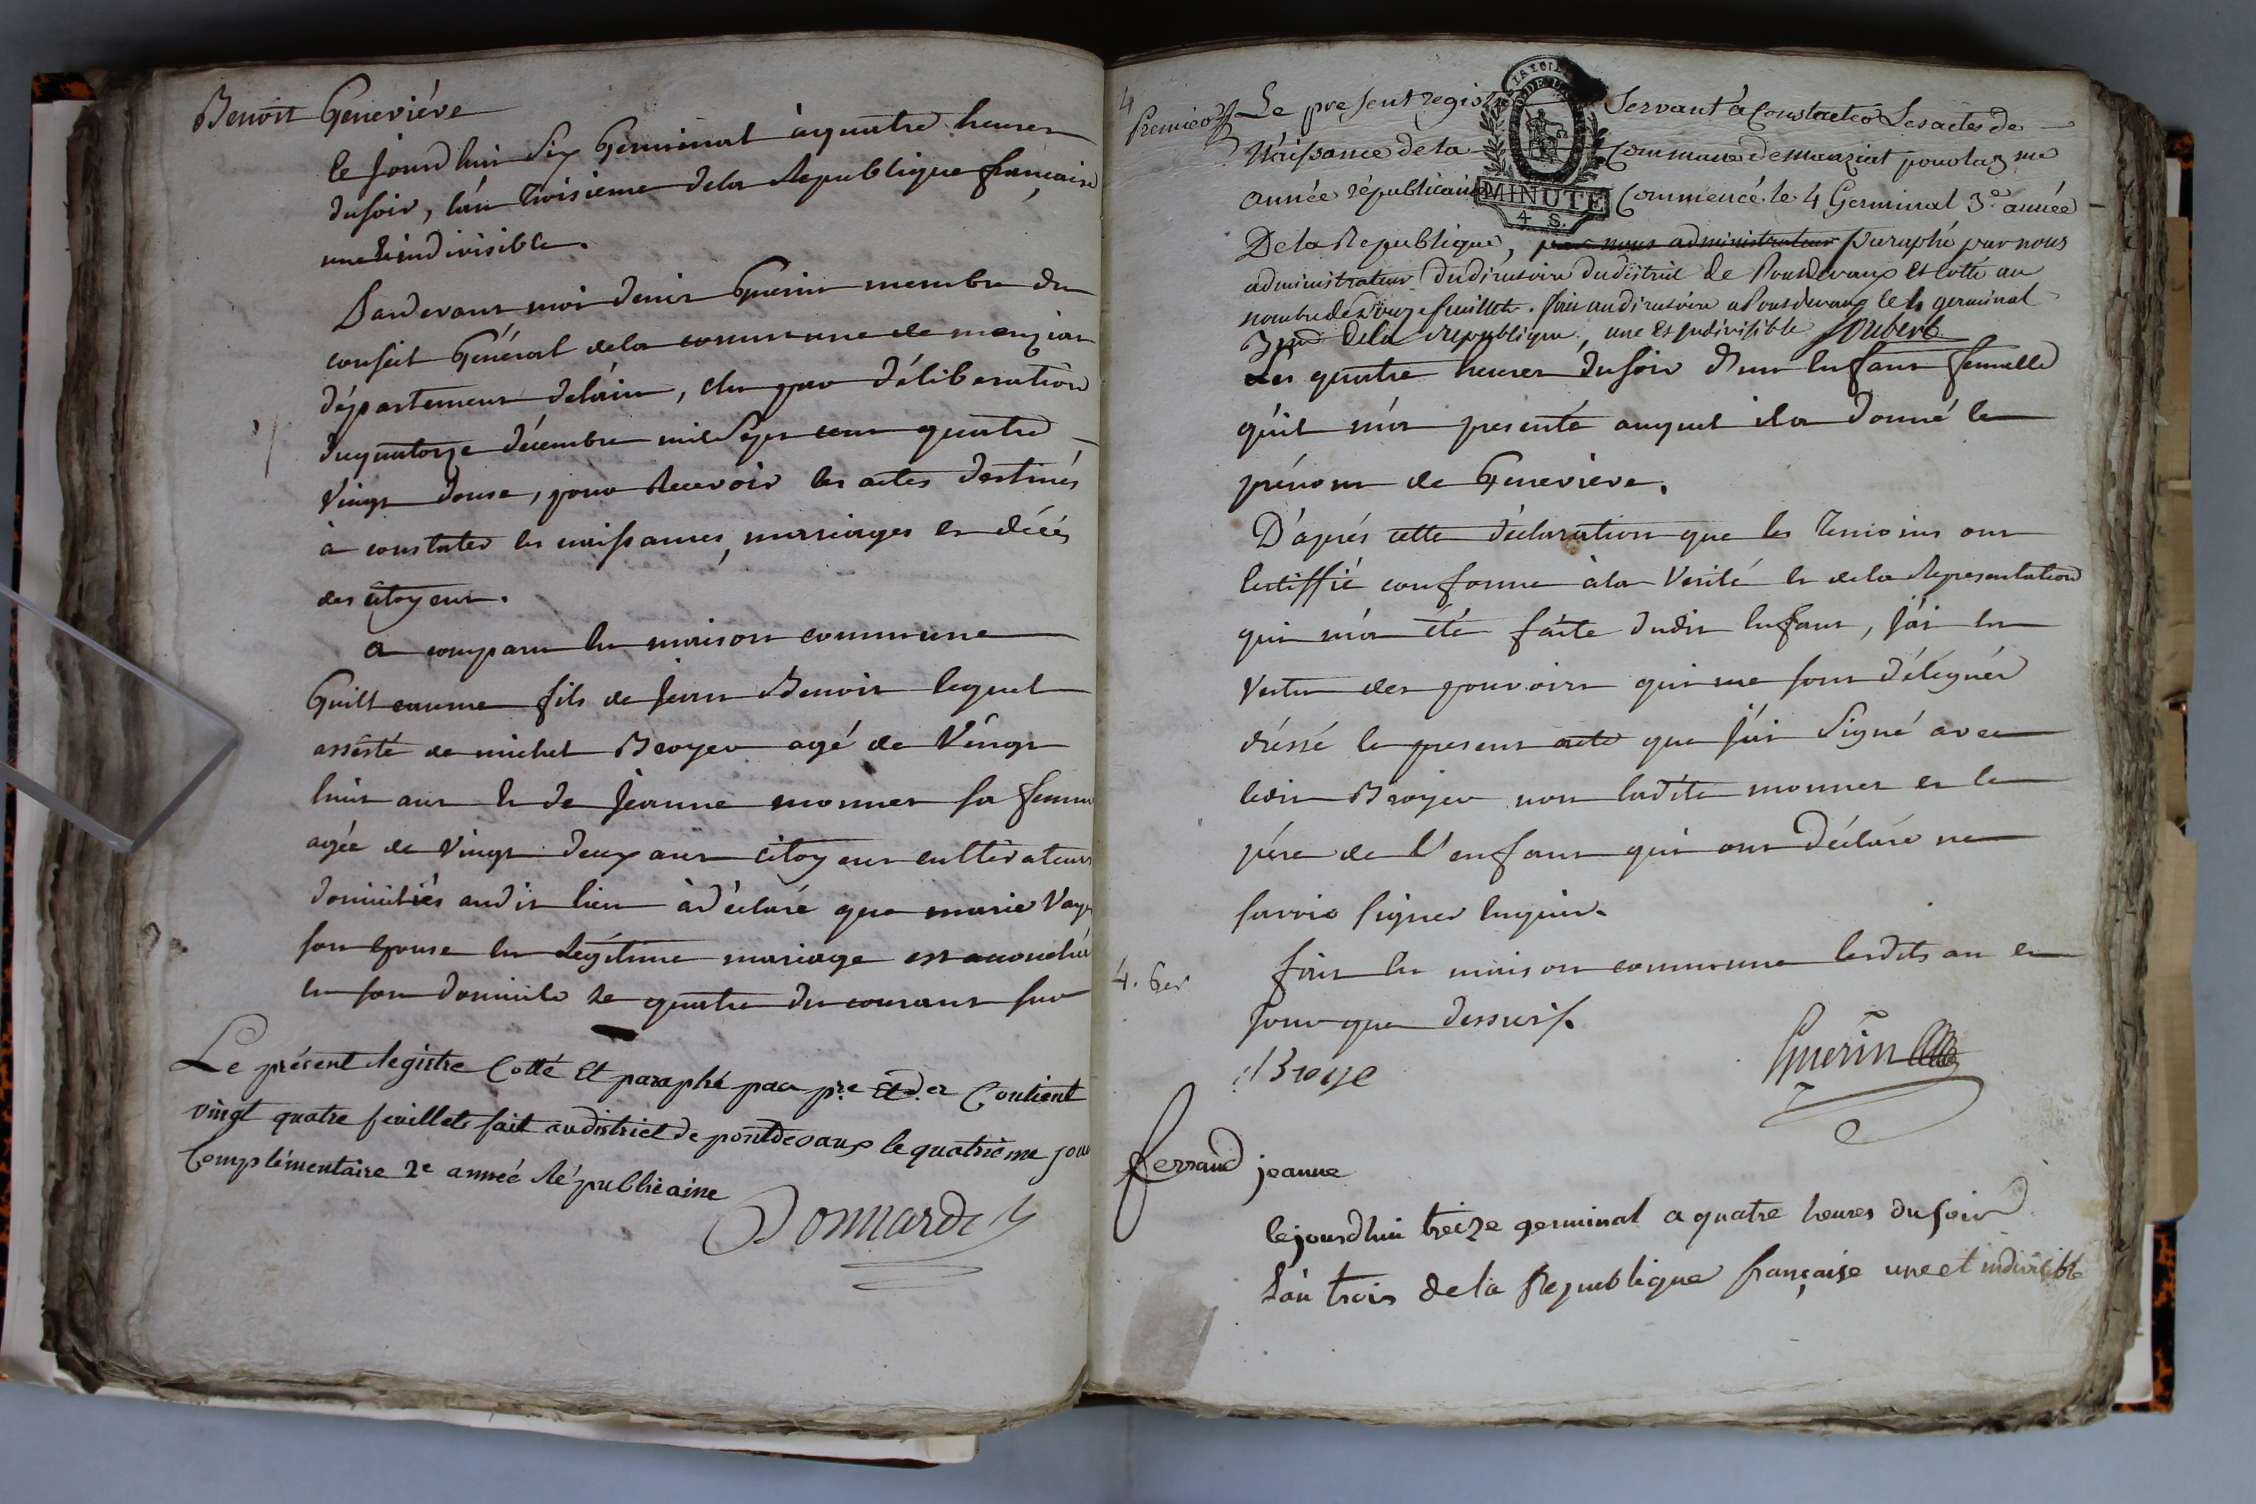 Benoit Geneviéve
le jourdhui Six Germinal à quatre heures
du soir, l'an troisieme de la Republique française
une & indivisible.
Pardevant moi denis Guerin membre du
conseil Général de la commune de manziat
département de láin, elu par déliberation
du quatorze décembre mil Sept cent quatre
Vingt douse, pour Recevoir les actes destinés
à constater les naissances, mariages et décés
des citoyens.
a comparu en maison commune
Guillaume fils de Jean Benoit lequel
assisté de michel Broyer agé de Vingt
huit ans et de Jeanne monnet sa femme
agée de Vingt deux ans citoyens cultivateurs
domiciliés audit lieu à déclaré que marie
son Epouse en Légitime mariage est accouchée
en son domicile le quatre du courant sur
Le présent Registre Cotté Et paraphé par pre. Et der Contient
vingt quatre feuillets fait au district de pontdevaux le quatrième jour
Complémentaire 2e année Républicaine
4
premier Le present regist Servant à Constater Les actes de
Naissance de la Commune de manziat pour la 3 me
année républicaine MINUTE Commencé le 4 Germinal 3e année
4 S.
De la Republique, par nous administrateur paraphé par nous
administrateur du directoire du district de Pontdevaux et cotté au
nombre de feuillets. fait au directoire a Pontdevaux le 4 germinal
3 de la republique, une et indivisible Joubert
Les quatre heures du soir d'un Enfant femelle
qu'il m'a presenté auquel il a donné le
prénom de Genevieve.
D'aprés cette déclaration que les Temoins ont
Certiffié conforme à la Verité et de la Representation
qui m'a été faite dudit Enfant, j'ai En
Vertu des pouvoirs qui me sont délegués
dréssé le present acte que j'ai Signé avec
ledit Broyer non ladite monnet et le
pére de l'enfant qui ont déclaré ne
savoir signer Enquis.
4. Ger fait En maison commune lesdits an et
jour que dessus.
Broye Guerin
ferrand jeanne
le jourdhui treize germinal a quatre heures du soir
L'an trois de la Republique française une et indivisible